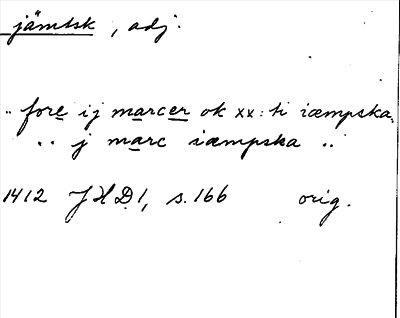 jämtsk, adj.
.. fore ij marcer ok xx:ti iæmpska,
.. j marc iæmpska ..
1412 JHD 1, s. 166 orig.